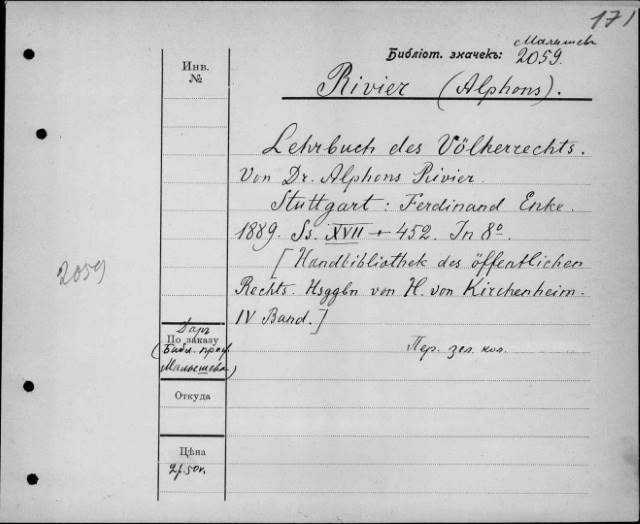 171
Малышев
Библіот. значекъ: 2059.
Инв.
№
Rivier (Alphons).
Lehrbuch des Völkerrechts.
Von Dr. Alphons Rivier.
Stuttgart: Ferdinand Enke.
1889. Ss. XVII + 452. In 8º.
[Handbibliothek des öffentlichen
Rechts. Hsggbn von H. von Kirchenheim.
IV Band.]
2059
Даръ
По заказу
(Библ. проф.
Малышева)
Пер. зел. кол.
Откуда
Цѣна
2р. 50к.